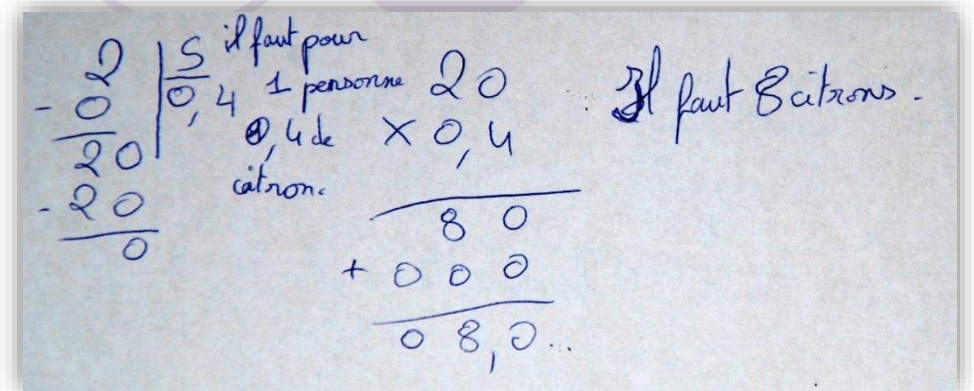 2 | 5
- 0 | 0,4
20
- 20
0
il faut pour
1 personne
0,4 de
citron.
20
× 0,4
80
+ 000
08,0
Il faut 8 citrons.